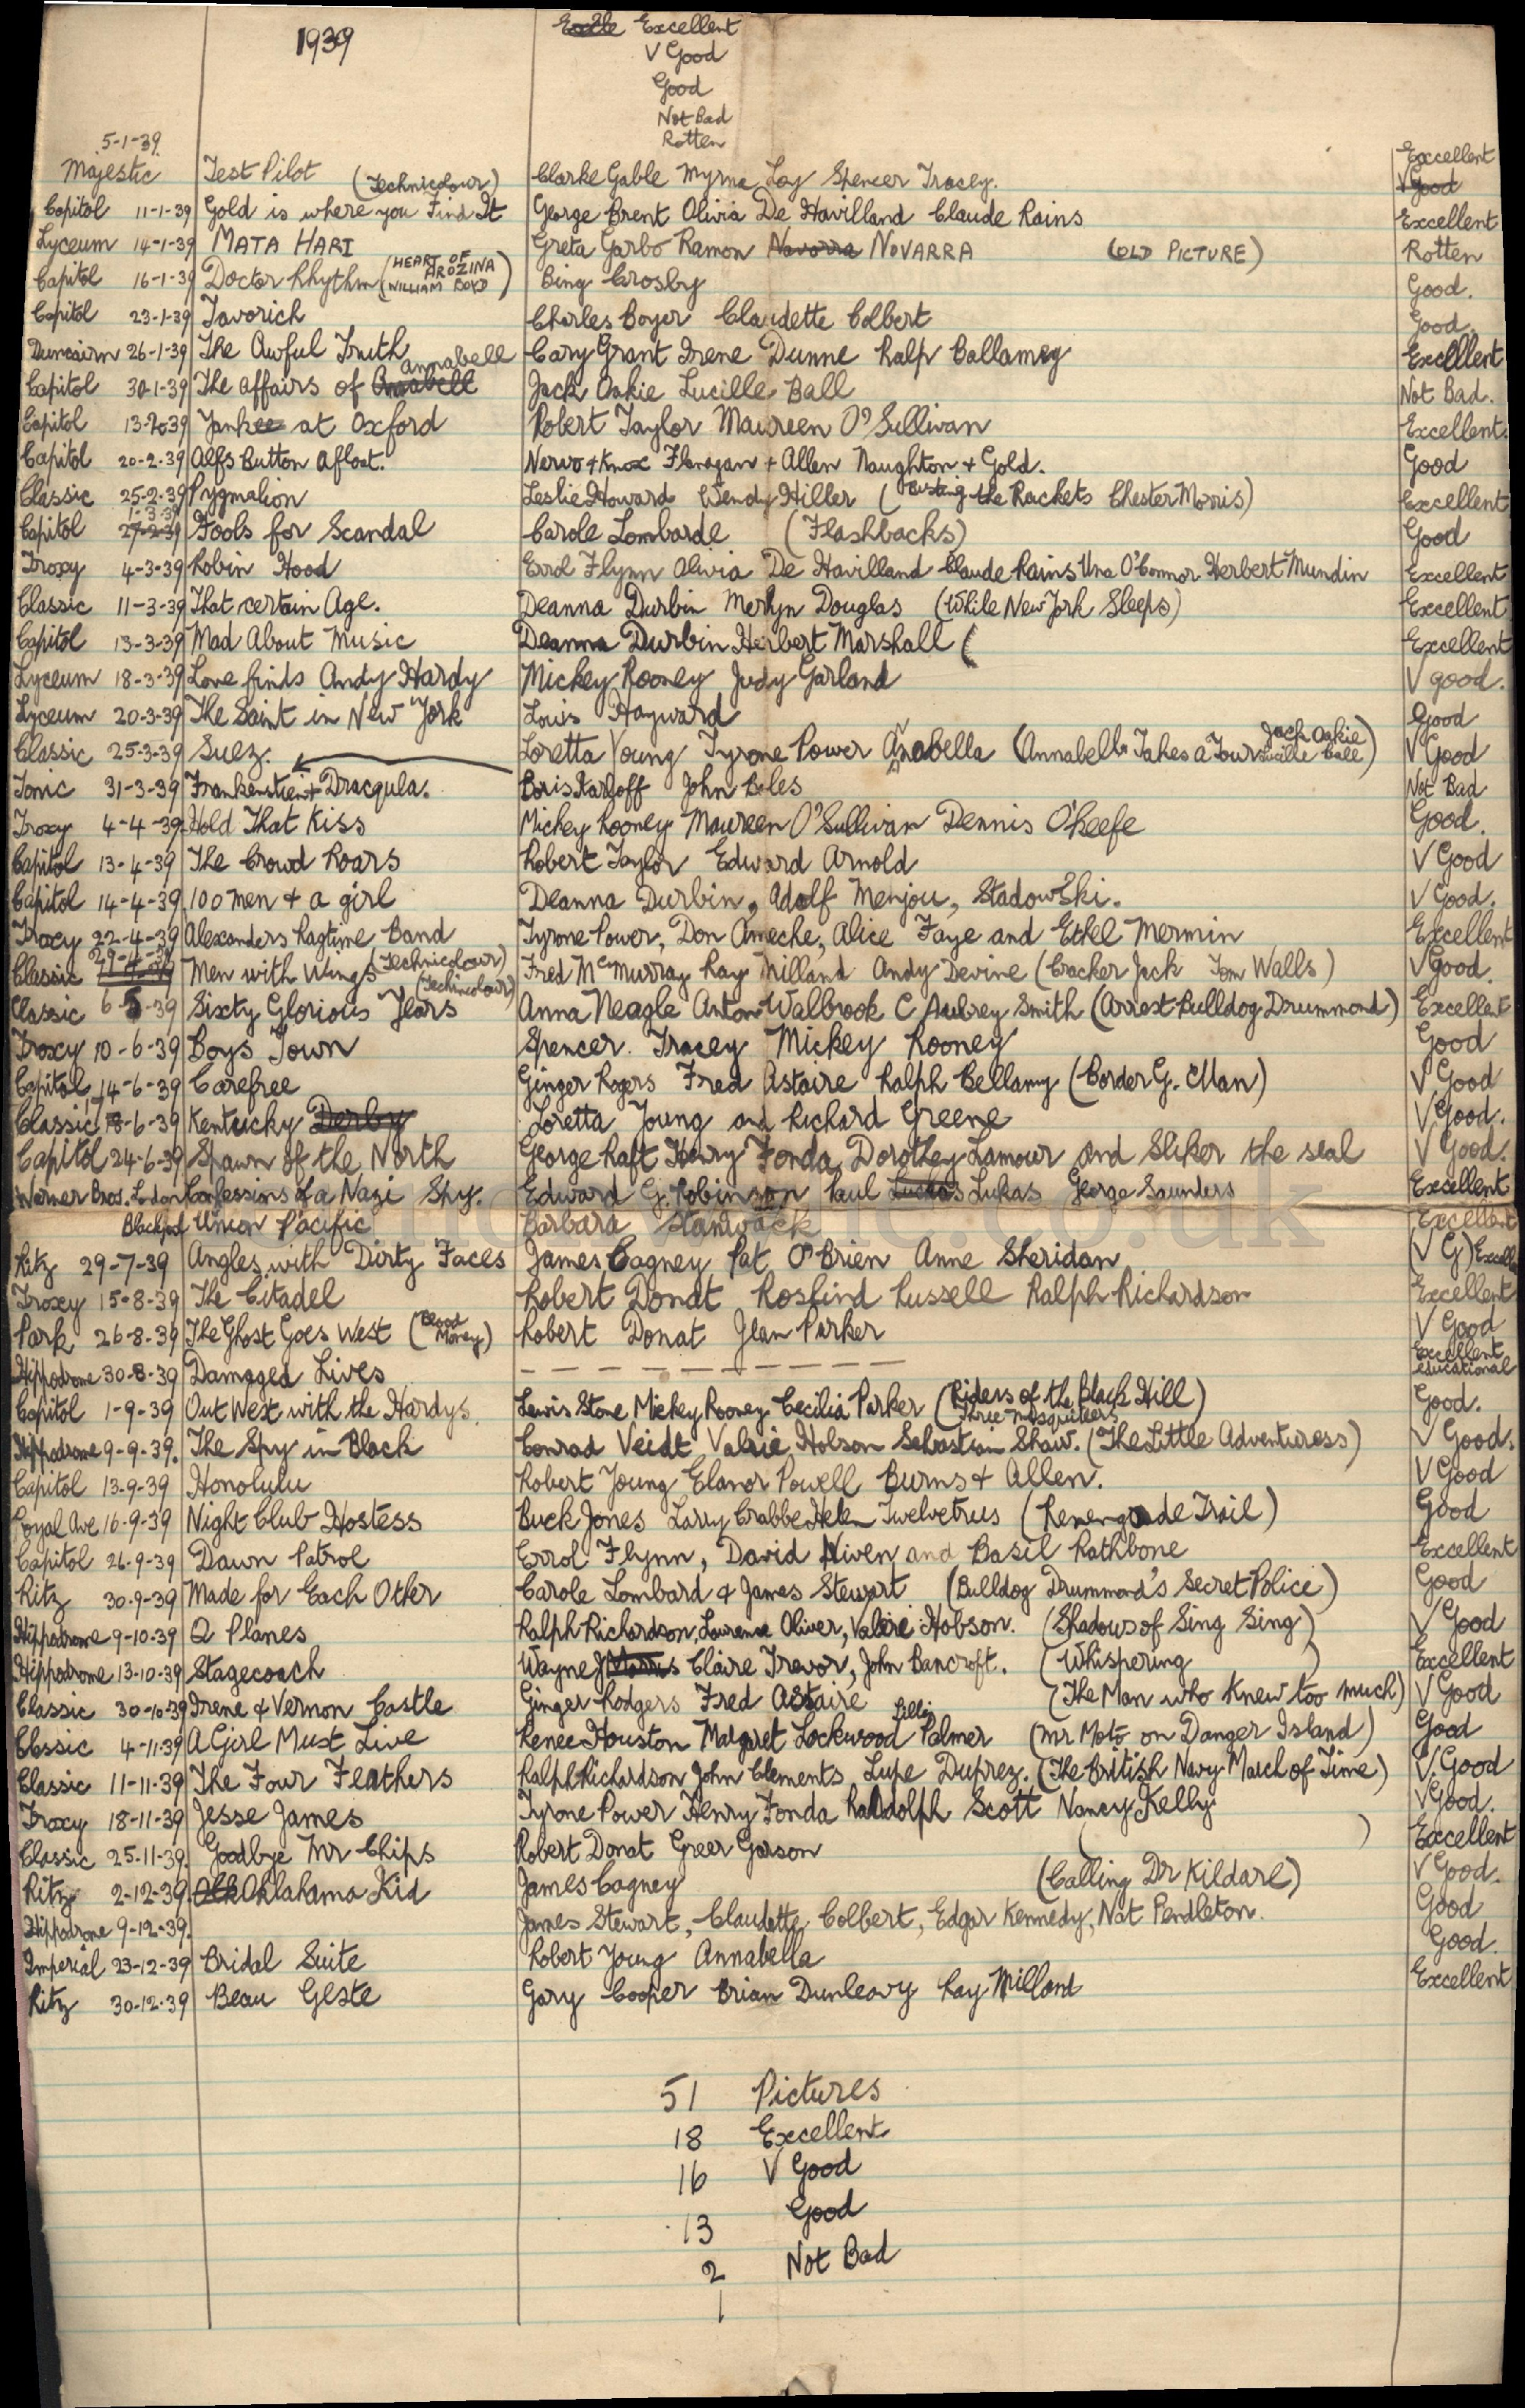 1939
Excellent
V Good
Good
Not Bad
Rotten
5-1-39
Majestic Test Pilot Clarke Gable Myrna Loy Spencer Tracey. Excellent V Good
Capitol 11-1-39 Gold is where you Find It (Technicolour) George Brent Olivia De Havilland Claude Rains Excellent
Lyceum 14-1-39 MATA HARI Greta Garbo Ramon Navarra NOVARRA (OLD PICTURE) Rotten
Capitol 16-1-39 Doctor Rhythm (HEART OF AROZINA WILLIAM BOYD) Bing Crosby Good.
Capitol 23-1-39 Tavorich Charles Boyer Claudette Colbert Good.
Duncairn 26-1-39 The Awful Truth Cary Grant Irene Dunne Ralp Ballamey Excellent
Capitol 30-1-39 The affairs of Annabell Annabell Jack Oakie Lucille Ball Not Bad.
Capitol 13-2-39 Yankee at Oxford Robert Taylor Maureen O'Sullivan Excellent.
Capitol 20-2-39 Alfs Button Afloat. Nervo + Knox Flanagan + Allen Naughton + Gold. Good
Classic 25-2-39 Pygmalion Leslie Howard Wendy Hiller (Busting the Rackets Chester Morris) Excellent
Capitol 27-2-39 1-3-39 Fools for Scandal Carole Lombarde (Flashbacks) Good
Troxy 4-3-39 Robin Hood Errol Flynn Olivia De Havilland Claude Rains Una O'Connor Herbert Mundin Excellent
Classic 11-3-39 That certain Age. Deanna Durbin Merlyn Douglas (While New York Sleeps) Excellent
Capitol 13-3-39 Mad About Music Deanna Durbin Herbert Marshall ( Excellent
Lyceum 18-3-39 Love finds Andy Hardy Mickey Rooney Judy Garland V good.
Lyceum 20-3-39 The Saint in New York Louis Hayward Good
Classic 25-3-39 Suez. Loretta Young Tyrone Power Anabella (Annabelle Takes a Tour Jack Oakie Lucille Ball) V Good
Tonic 31-3-39 Frankenstien + Dracqula. Boris Karloff John Boles Not Bad
Troxy 4-4-39 Hold That Kiss Mickey Rooney Maureen O'Sullivan Dennis O'Keefe Good.
Capitol 13-4-39 The Crowd Roars Robert Taylor Edward Arnold V Good
Capitol 14-4-39 100 men + a girl Deanna Durbin, Adolf Menjou, Stadowski. V Good.
Troxy 22-4-39 Alexanders Ragtime Band Tyrone Power, Don Ameche, Alice Faye and Ethel Mermin Excellent
Classic 29-4-39 Men with Wings (Technicolour) Fred McMurray Ray Milland Andy Devine (Cracker Jack Tom Walls) V Good.
Classic 6-5-39 Sixty Glorious Years (Technicolour) Anna Neagle Anton Walbrook C Aubrey Smith (Arrest Bulldog Drummond) Excellent
Troxy 10-6-39 Boys Town Spencer. Tracey Mickey Rooney Good
Capitol 14-6-39 Carefree Ginger Rogers Fred Astaire Ralph Bellamy (Border G. Man) V Good
Classic 17-6-39 Kentucky Derby Loretta Young and Richard Greene V Good.
Capitol 24-6-39 Spawn of the North George Raft Henry Fonda Dorothey Lamour and Sliker the seal V Good.
Warner Bros. London Confessions of a Nazi Spy. Edward G. Robinson Paul Luckas Lukas George Saunders Excellent
Blackpool Union Pacific Barbara Stanwack Excellent
Ritz 29-7-39 Angles with Dirty Faces James Cagney Pat O'Brien Anne Sheridan (V G) Excelle
Troxy 15-8-39 The Citadel Robert Donat Roslind Russell Ralph Richardson Excellent
Park 26-8-39 The Ghost Goes West (Blood Money) Robert Donat Jean Parker V Good
Hippodrome 30-8-39 Damaged Lives — — — — — — — — — — Excellent educational
Capitol 1-9-39 Out West with the Hardys. Lewis Stone Mickey Rooney Cecilia Parker (Riders of the Black Hill) Three Mesquiteers Good.
Hippodrome 9-9-39. The Spy in Black Conrad Veidt Valrie Hobson Sebastian Shaw. (The Little Adventuress) V Good.
Capitol 13-9-39 Honolulu Robert Young Elanor Powell Burns + Allen. V Good
Royal Ave 16-9-39 Night Club Hostess Buck Jones Larry Crabbe Helen Twelvetrus (Renengade Trail) Good
Capitol 26-9-39 Dawn Patrol Errol Flynn, David Niven and Basil Rathbone Excellent
Ritz 30-9-39 Made for Each Other Carole Lombard & James Stewart (Bulldog Drummond's Secret Police) Good
Hippodrome 9-10-39 Q Planes Ralph Richardson, Laurence Oliver, Valire Hobson. (Shadows of Sing Sing) V Good
Hippodrome 13-10-39 Stagecoach Wayne J Morris Claire Trevor, John Bancroft. (Whispering ) Excellent
Classic 30-10-39 Irene & Vernon Castle Ginger Rodgers Fred Astaire (The Man who Knew too much) V Good
Classic 4-11-39 A Girl Must Live Renee Houston Margret Lockwood Lilli Palmer (Mr Moto on Danger Island) Good
Classic 11-11-39 The Four Feathers Ralph Richardson John Clements Lupe Duprez. (The British Navy March of Time) V. Good
Troxy 18-11-39 Jesse James Tyrone Power Henry Fonda Raldolph Scott Nancy Kelly V Good.
Classic 25-11-39. Goodbye Mr Chips Robert Donat Greer Garson ( ) Excellent
Ritz 2-12-39. Olk Oklahama Kid James Cagney (Calling Dr Kildare) V Good.
Hippodrome 9-12-39. James Stewart, Claudette Colbert, Edgar Kennedy, Nat Pendleton. Good
Imperial 23-12-39 Bridal Suite Robert Young Annabella Good.
Ritz 30-12-39 Beau Geste Gary Cooper Brian Dunleavy Ray Milland Excellent
51 Pictures
18 Excellent
16 V Good
13 Good
2 Not Bad
1